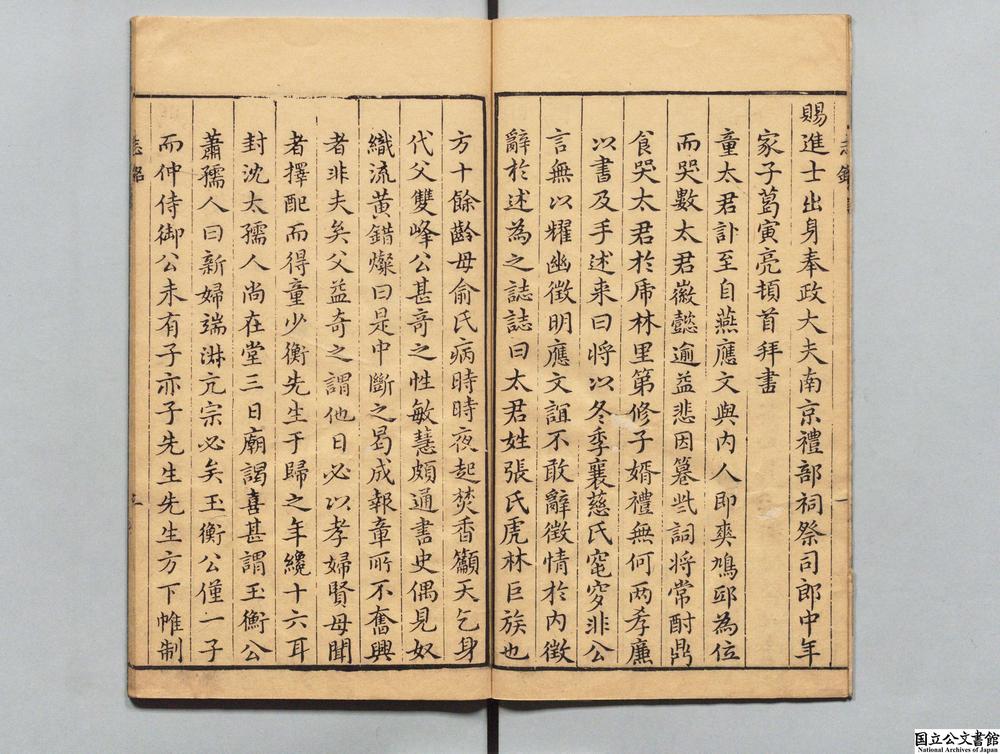 賜進士出身奉政大夫南京禮部祠祭司郎中年
家子葛寅亮頓首拜書
童太君訃至自燕應文與内人即爽鳩邸為位
而哭數太君徽懿逾益悲因篹誄詞将常酎鼎
食哭太君於虎林里第修子婿禮無何两孝廉
以書及手述来曰将以冬季襄慈氏窀穸非公
言無以耀幽徴明應文誼不敢辭徴情於内徴
辭於述為之誌誌曰太君姓張氏虎林巨族也
方十餘齡母俞氏病時時夜起焚香籲天乞身
代父雙峰公甚竒之性敏慧頗通書史偶見奴
織流黄錯燦曰是中斷之曷成報章所不奮興
者非夫矣父益奇之謂他日必以孝婦賢母聞
者擇配而得童少衡先生于歸之年纔十六耳
封沈太孺人尚在堂三日廟謁喜甚謂玉衡公
蕭孺人曰新婦端淋亢宗必矣玉衡公僅一子
而仲侍御公未有子亦子先生先生方下帷制
国立公文書館
National Archives of Japan